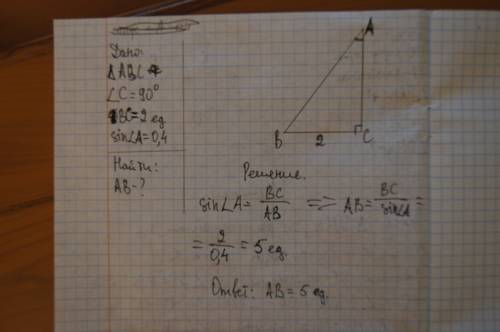 Дано:
ΔABC
∠C=90°
BC=2 ед
sin∠A=0,4
Найти:
AB-?
A
B
2
C
Решение.
sin∠A= BC/AB => AB= BC/sin∠A =
= 2/0,4 = 5 ед.
Ответ: AB = 5 ед.